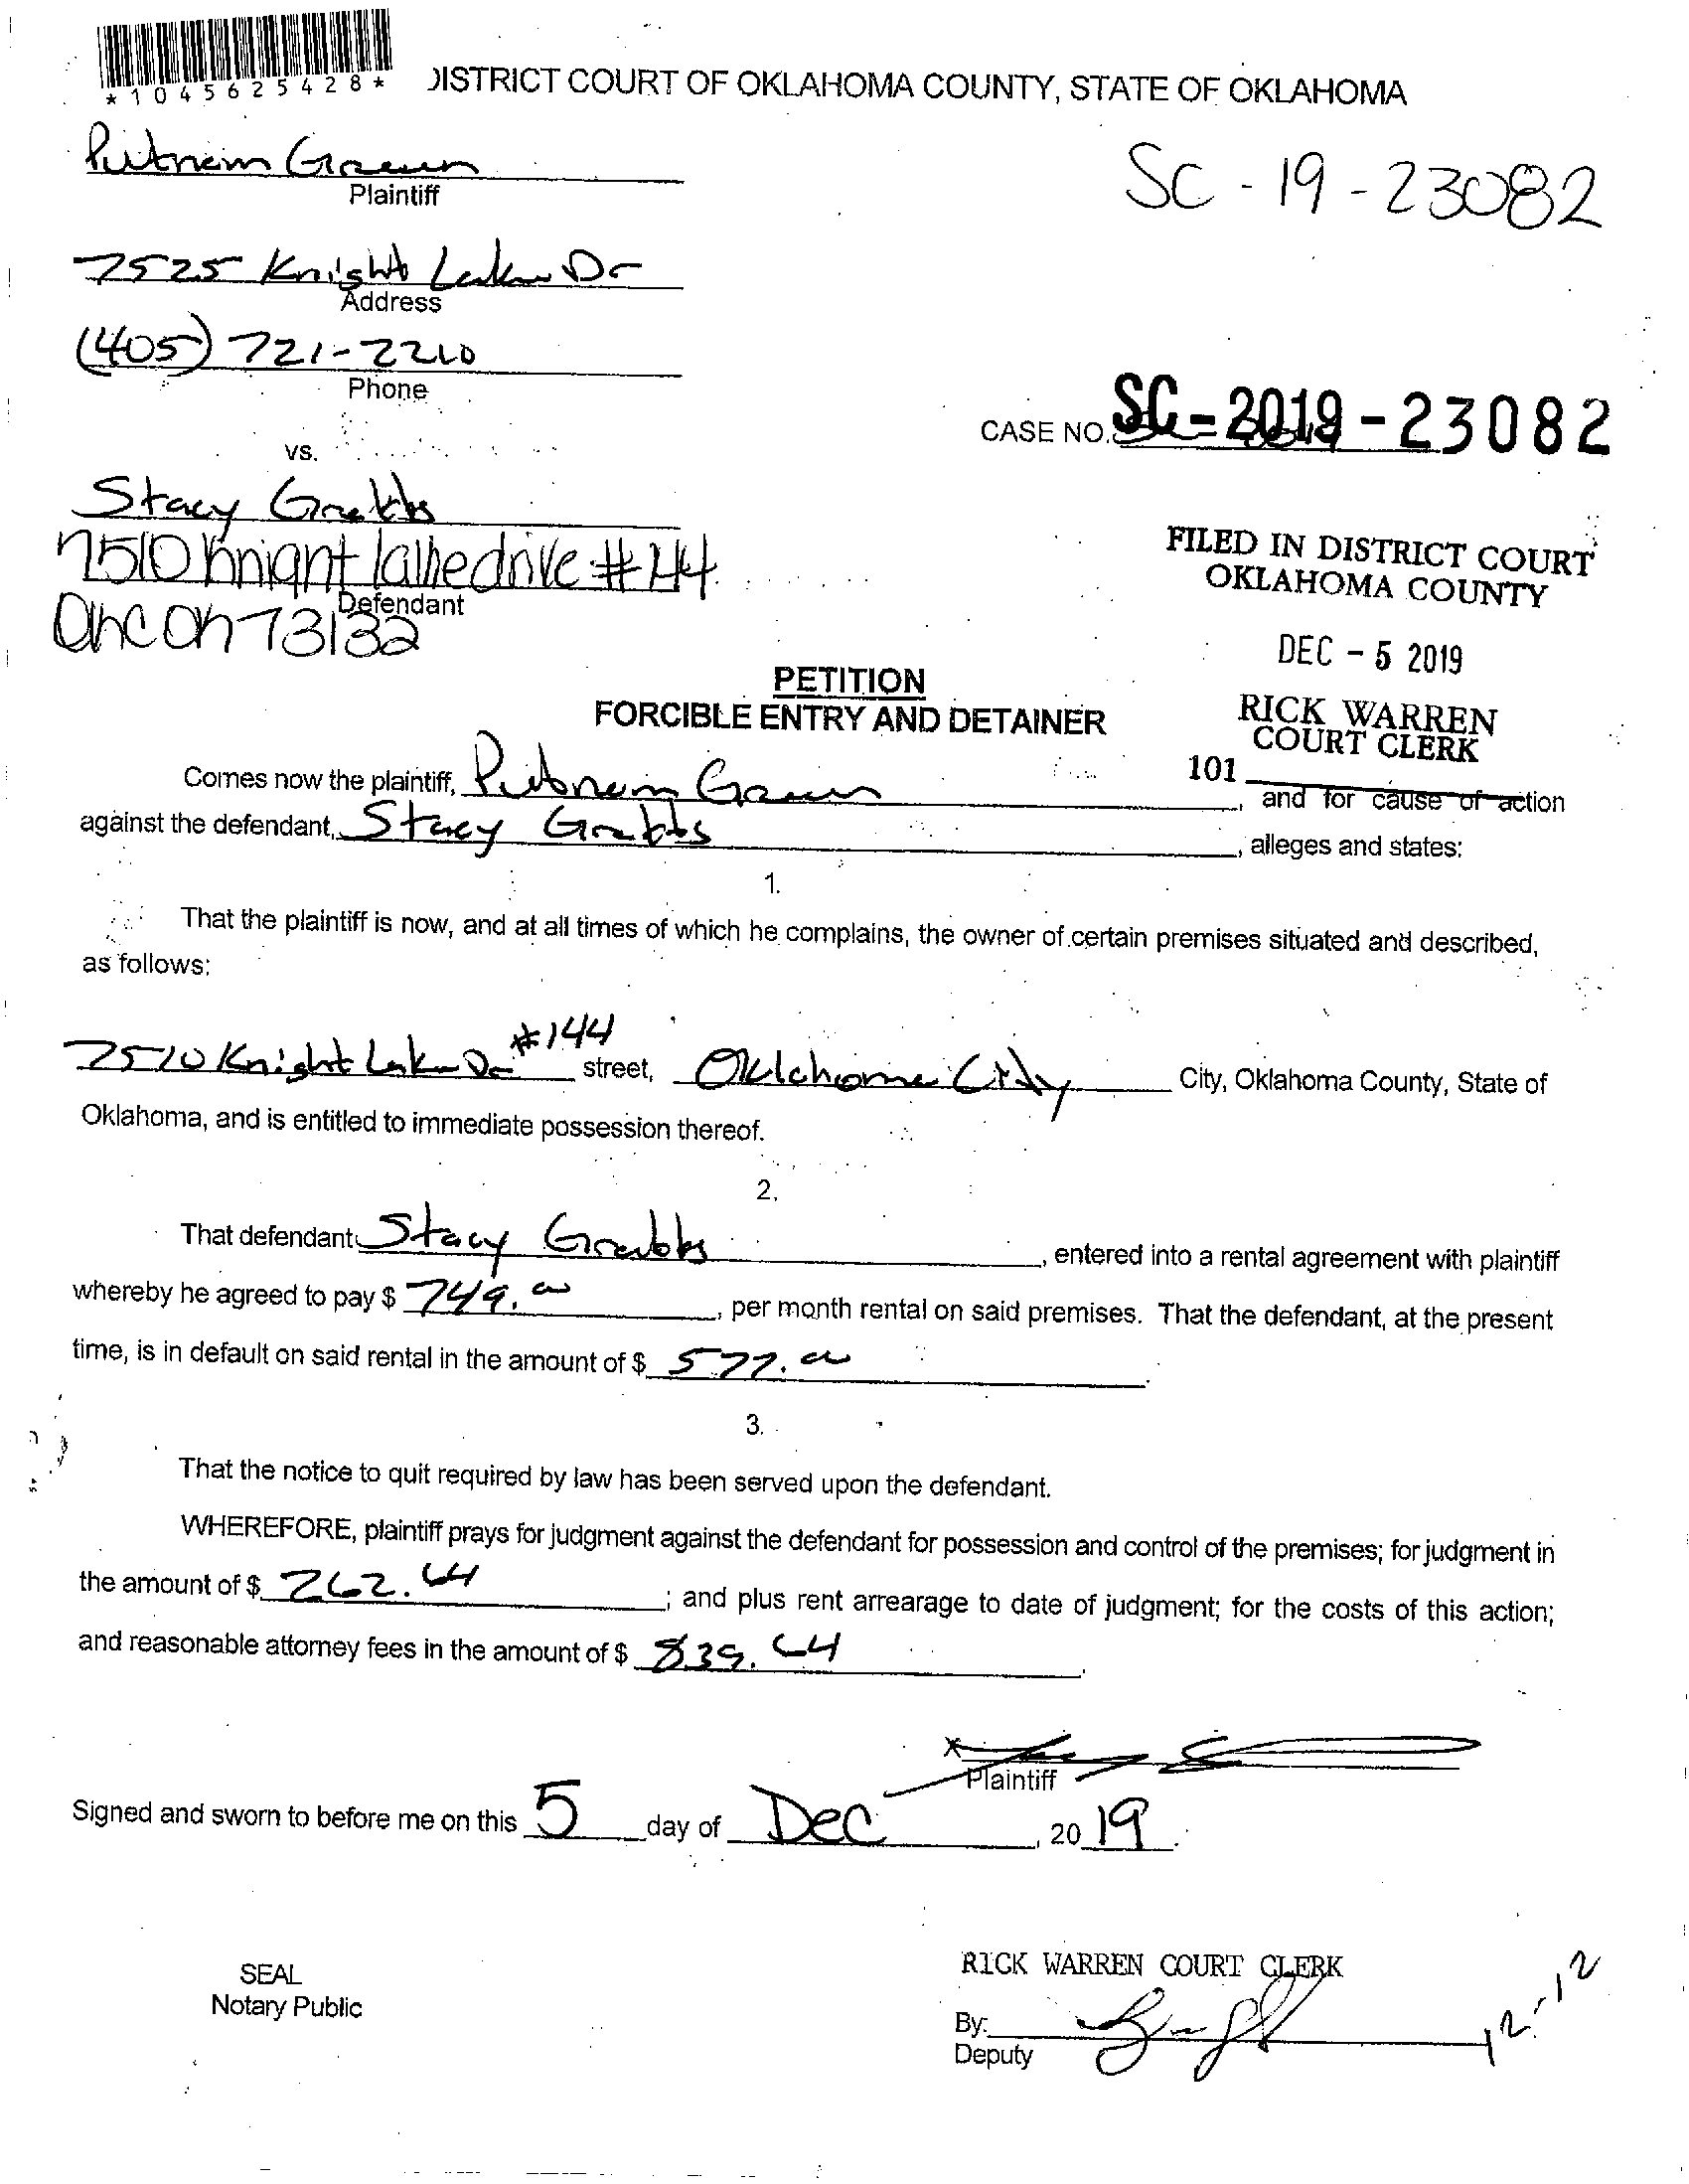 *1045625428*
DISTRICT COURT OF OKLAHOMA COUNTY, STATE OF OKLAHOMA
Putnam Green
Plaintiff
SC - 19 - 23082
7525 Knight Lake Dr
Address
(405) 721-2210
Phone
CASE NO. SC-2019-23082
vs.
Stacy Grabbs
7510 Knight lake drive #144
Defendant
OKC OK 73132
FILED IN DISTRICT COURT
OKLAHOMA COUNTY
DEC - 5 2019
RICK WARREN
COURT CLERK
101
PETITION
FORCIBLE ENTRY AND DETAINER
Comes now the plaintiff, Putnam Green, and for cause of action
against the defendant, Stacy Grabbs, alleges and states:
1.
That the plaintiff is now, and at all times of which he complains, the owner of certain premises situated and described,
as follows:
7510 Knight Lake Dr #144 street, Oklahoma City City, Oklahoma County, State of
Oklahoma, and is entitled to immediate possession thereof.
2.
That defendant Stacy Grabbs, entered into a rental agreement with plaintiff
whereby he agreed to pay $ 749.00, per month rental on said premises. That the defendant, at the present
time, is in default on said rental in the amount of $ 577.00.
3.
That the notice to quit required by law has been served upon the defendant.
WHEREFORE, plaintiff prays for judgment against the defendant for possession and control of the premises; for judgment in
the amount of $ 262.64; and plus rent arrearage to date of judgment; for the costs of this action;
and reasonable attorney fees in the amount of $ 839.64.
Plaintiff
Signed and sworn to before me on this 5 day of Dec, 2019.
SEAL
Notary Public
RICK WARREN COURT CLERK
By:
Deputy
12-12